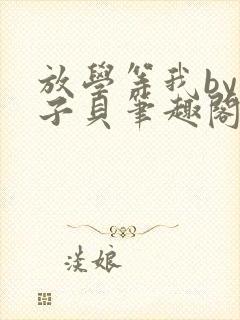 放學等我by
子貝筆趣閣
淡娘